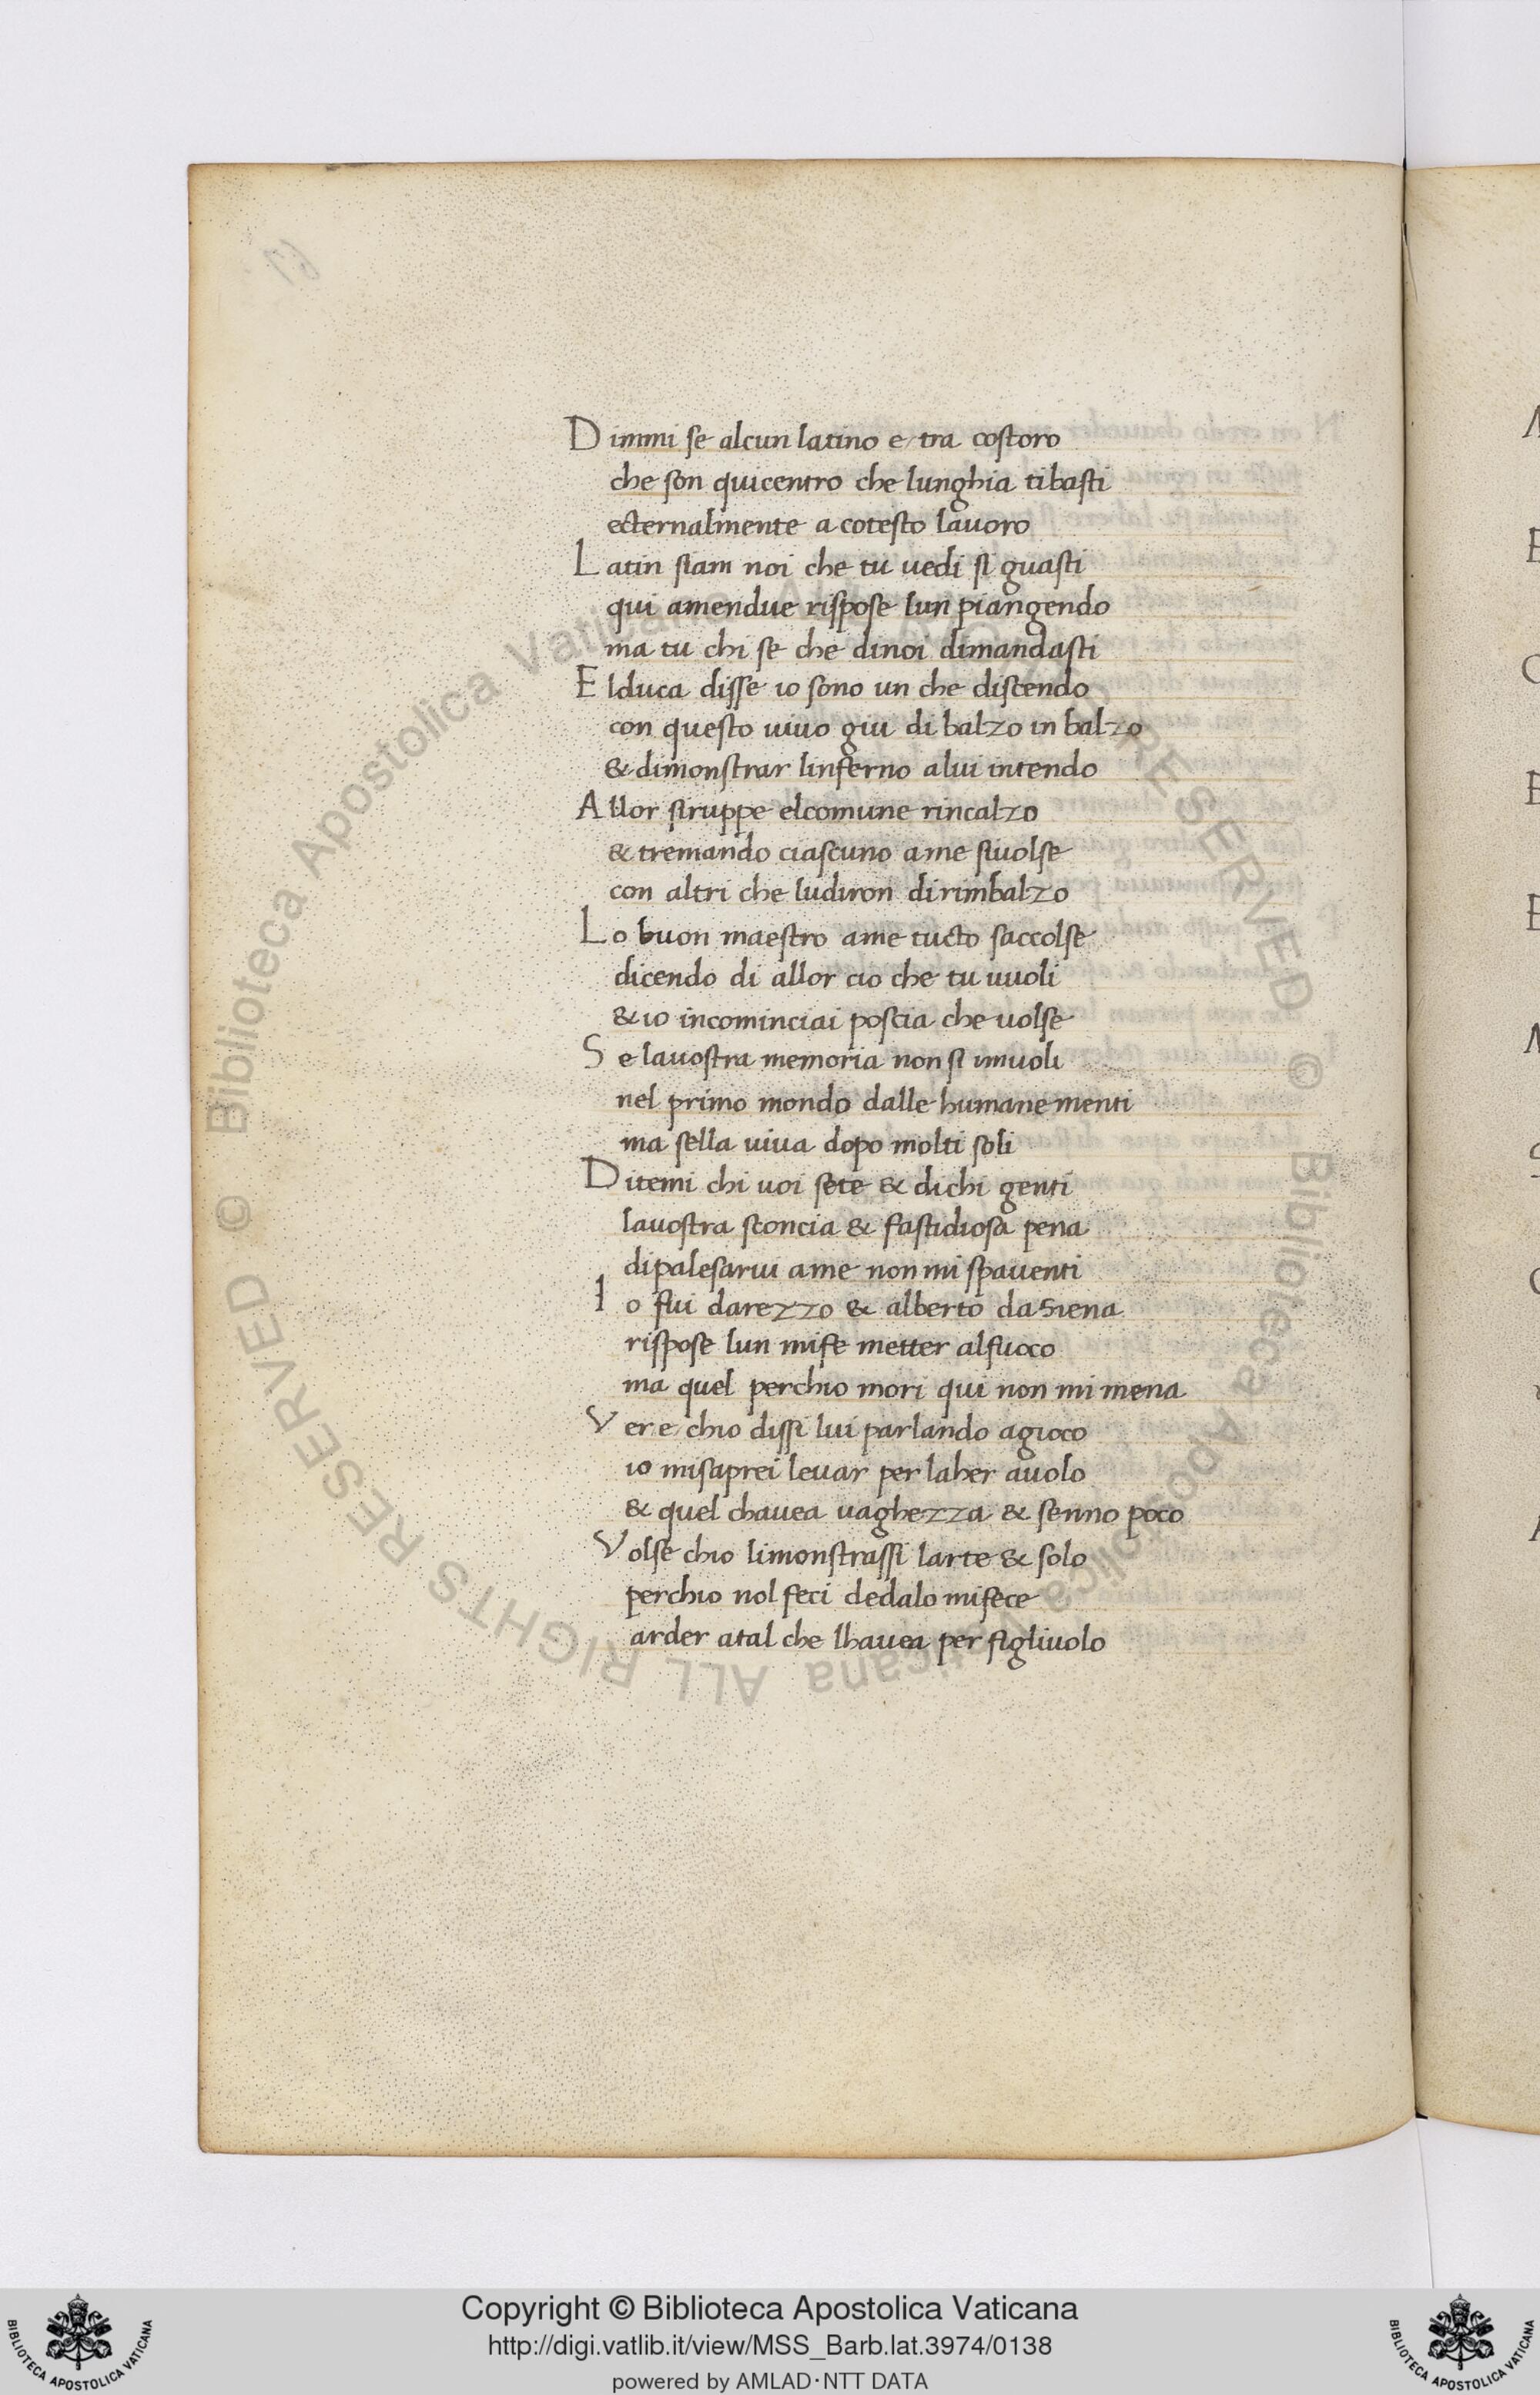 Dimmi se alcun latino e tra costoro
che son quicentro che lunghia tibasti
ecternalmente a cotesto lauoro
Latin siam noi che tu uedi si guasti
qui amendue rispose lun piangendo
ma tu chi se che dinoi dimandasti
Elduca disse io sono un che discendo
con questo uiuo giu di balzo in balzo
& dimonstrar linferno alui intendo
Allor siruppe elcomune rincalzo
& tremando ciascuno ame siuolse
con altri che ludiron di rimbalzo
Lo buon maestro ame tucto saccolse
dicendo di allor cio che tu uuoli
& io incominciai poscia che uolse
Se lauostra memoria non si imuoli
nel primo mondo dalle humane menti
ma sella uiua dopo molti soli
Ditemi chi uoi sete & dichi genti
lauostra sconcia & fastidiosa pena
dipalesarui ame non mi spauenti
Io fui darezzo & alberto da Siena
rispose lun mife metter alfuoco
ma quel perchio mori qui non mi mena
Ver e chio dissi lui parlando agioco
io misaprei leuar per laher auolo
& quel chauea uaghezza & senno poco
Volse chio limonstrassi larte & solo
perchio nol feci dedalo mifece
arder atal che lhauea per figliuolo
Biblioteca Apostolica Vaticana ALL RIGHTS RESERVED ©
Biblioteca Apostolica Vaticana ALL RIGHTS RESERVED ©
BIBLIOTECA APOSTOLICA VATICANA
Copyright © Biblioteca Apostolica Vaticana
http://digi.vatlib.it/view/MSS_Barb.lat.3974/0138
powered by AMLAD·NTT DATA
BIBLIOTECA APOSTOLICA VATICANA